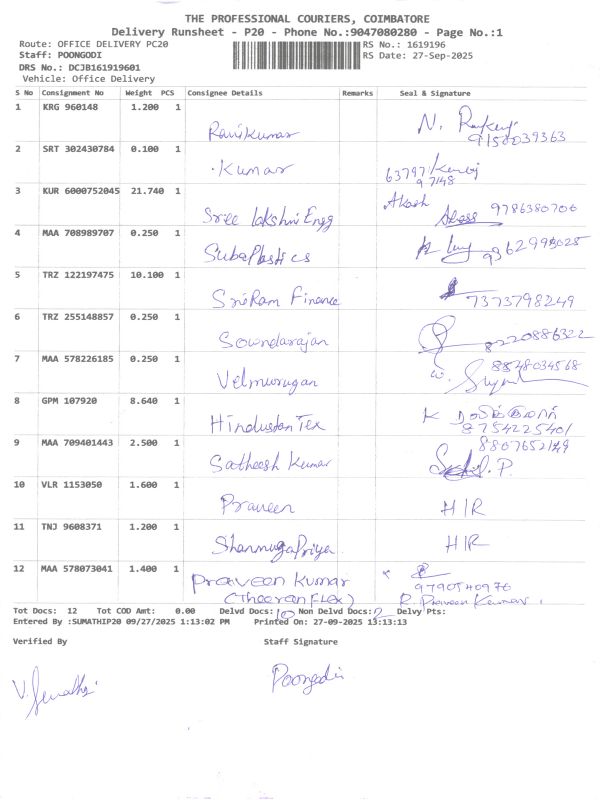 THE PROFESSIONAL COURIERS, COIMBATORE
Delivery Runsheet - P20 - Phone No.:9047080280 - Page No.:1
Route: OFFICE DELIVERY PC20
RS No.: 1619196
Staff: POONGODI
RS Date: 27-Sep-2025
DRS No.: DCJB161919601
Vehicle: Office Delivery
S No Consignment No Weight PCS Consignee Details Remarks Seal & Signature
1 KRG 960148 1.200 1
Ravikumar N. 9150039363
2 SRT 302430784 0.100 1
Kumar 63797
97148
3 KUR 6000752045 21.740 1
Sree lakshmi Engg Akash 9786380706
4 MAA 708989707 0.250 1
Suba Plastics
5 TRZ 122197475 10.100 1
SriRam Finance 7373798249
6 TRZ 255148857 0.250 1
Soundarajan 8220886322
7 MAA 578226185 0.250 1
Velmurugan 8848034568
8 GPM 107920 8.640 1
Hindustan Tex K
8754225401
9 MAA 709401443 2.500 1
Satheesh Kumar
10 VLR 1153050 1.600 1
Praveen H/R
11 TNJ 9608371 1.200 1
ShanmugaPriya H/R
12 MAA 578073041 1.400 1
Praveen Kumar 9790540976
(Theeran FLex) R. Praveen Kumar
Tot Docs: 12 Tot COD Amt: 0.00 Delvd Docs: 10 Non Delvd Docs: 2 Delvy Pts:
Entered By :SUMATHIP20 09/27/2025 1:13:02 PM Printed On: 27-09-2025 13:13:13
Verified By Staff Signature
Poongodi